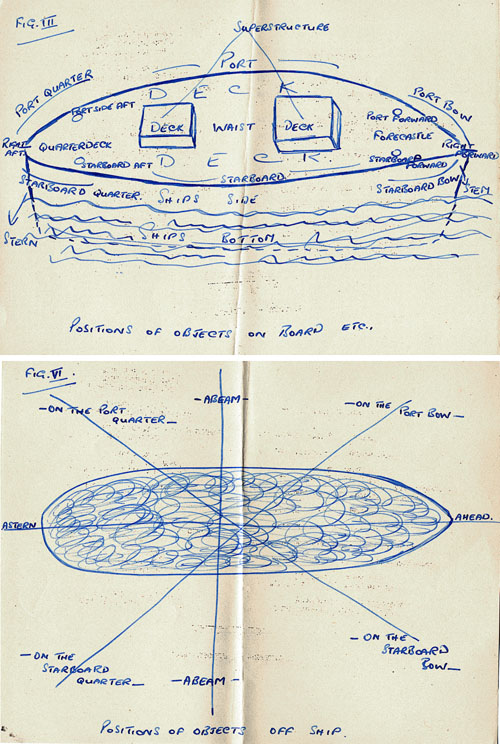 FIG. III
SUPERSTRUCTURE
PORT
PORT QUARTER
D E C K
PORT BOW
PORTSIDE AFT
PORT FORWARD
DECK
WAIST
DECK
FORECASTLE
RIGHT AFT
QUARTERDECK
RIGHT FORWARD
STARBOARD AFT
D E C K.
STARBOARD FORWARD
STARBOARD
STARBOARD QUARTER.
SHIPS SIDE
STARBOARD BOW
STEM
STERN
SHIPS BOTTOM
POSITIONS OF OBJECTS ON BOARD ETC.,
FIG. VI.
—ON THE PORT
QUARTER—
—ABEAM—
—ON THE
PORT BOW—
ASTERN
AHEAD.
—ON THE
STARBOARD
QUARTER—
—ABEAM—
—ON THE
STARBOARD
BOW—
POSITIONS OF OBJECTS OFF SHIP.